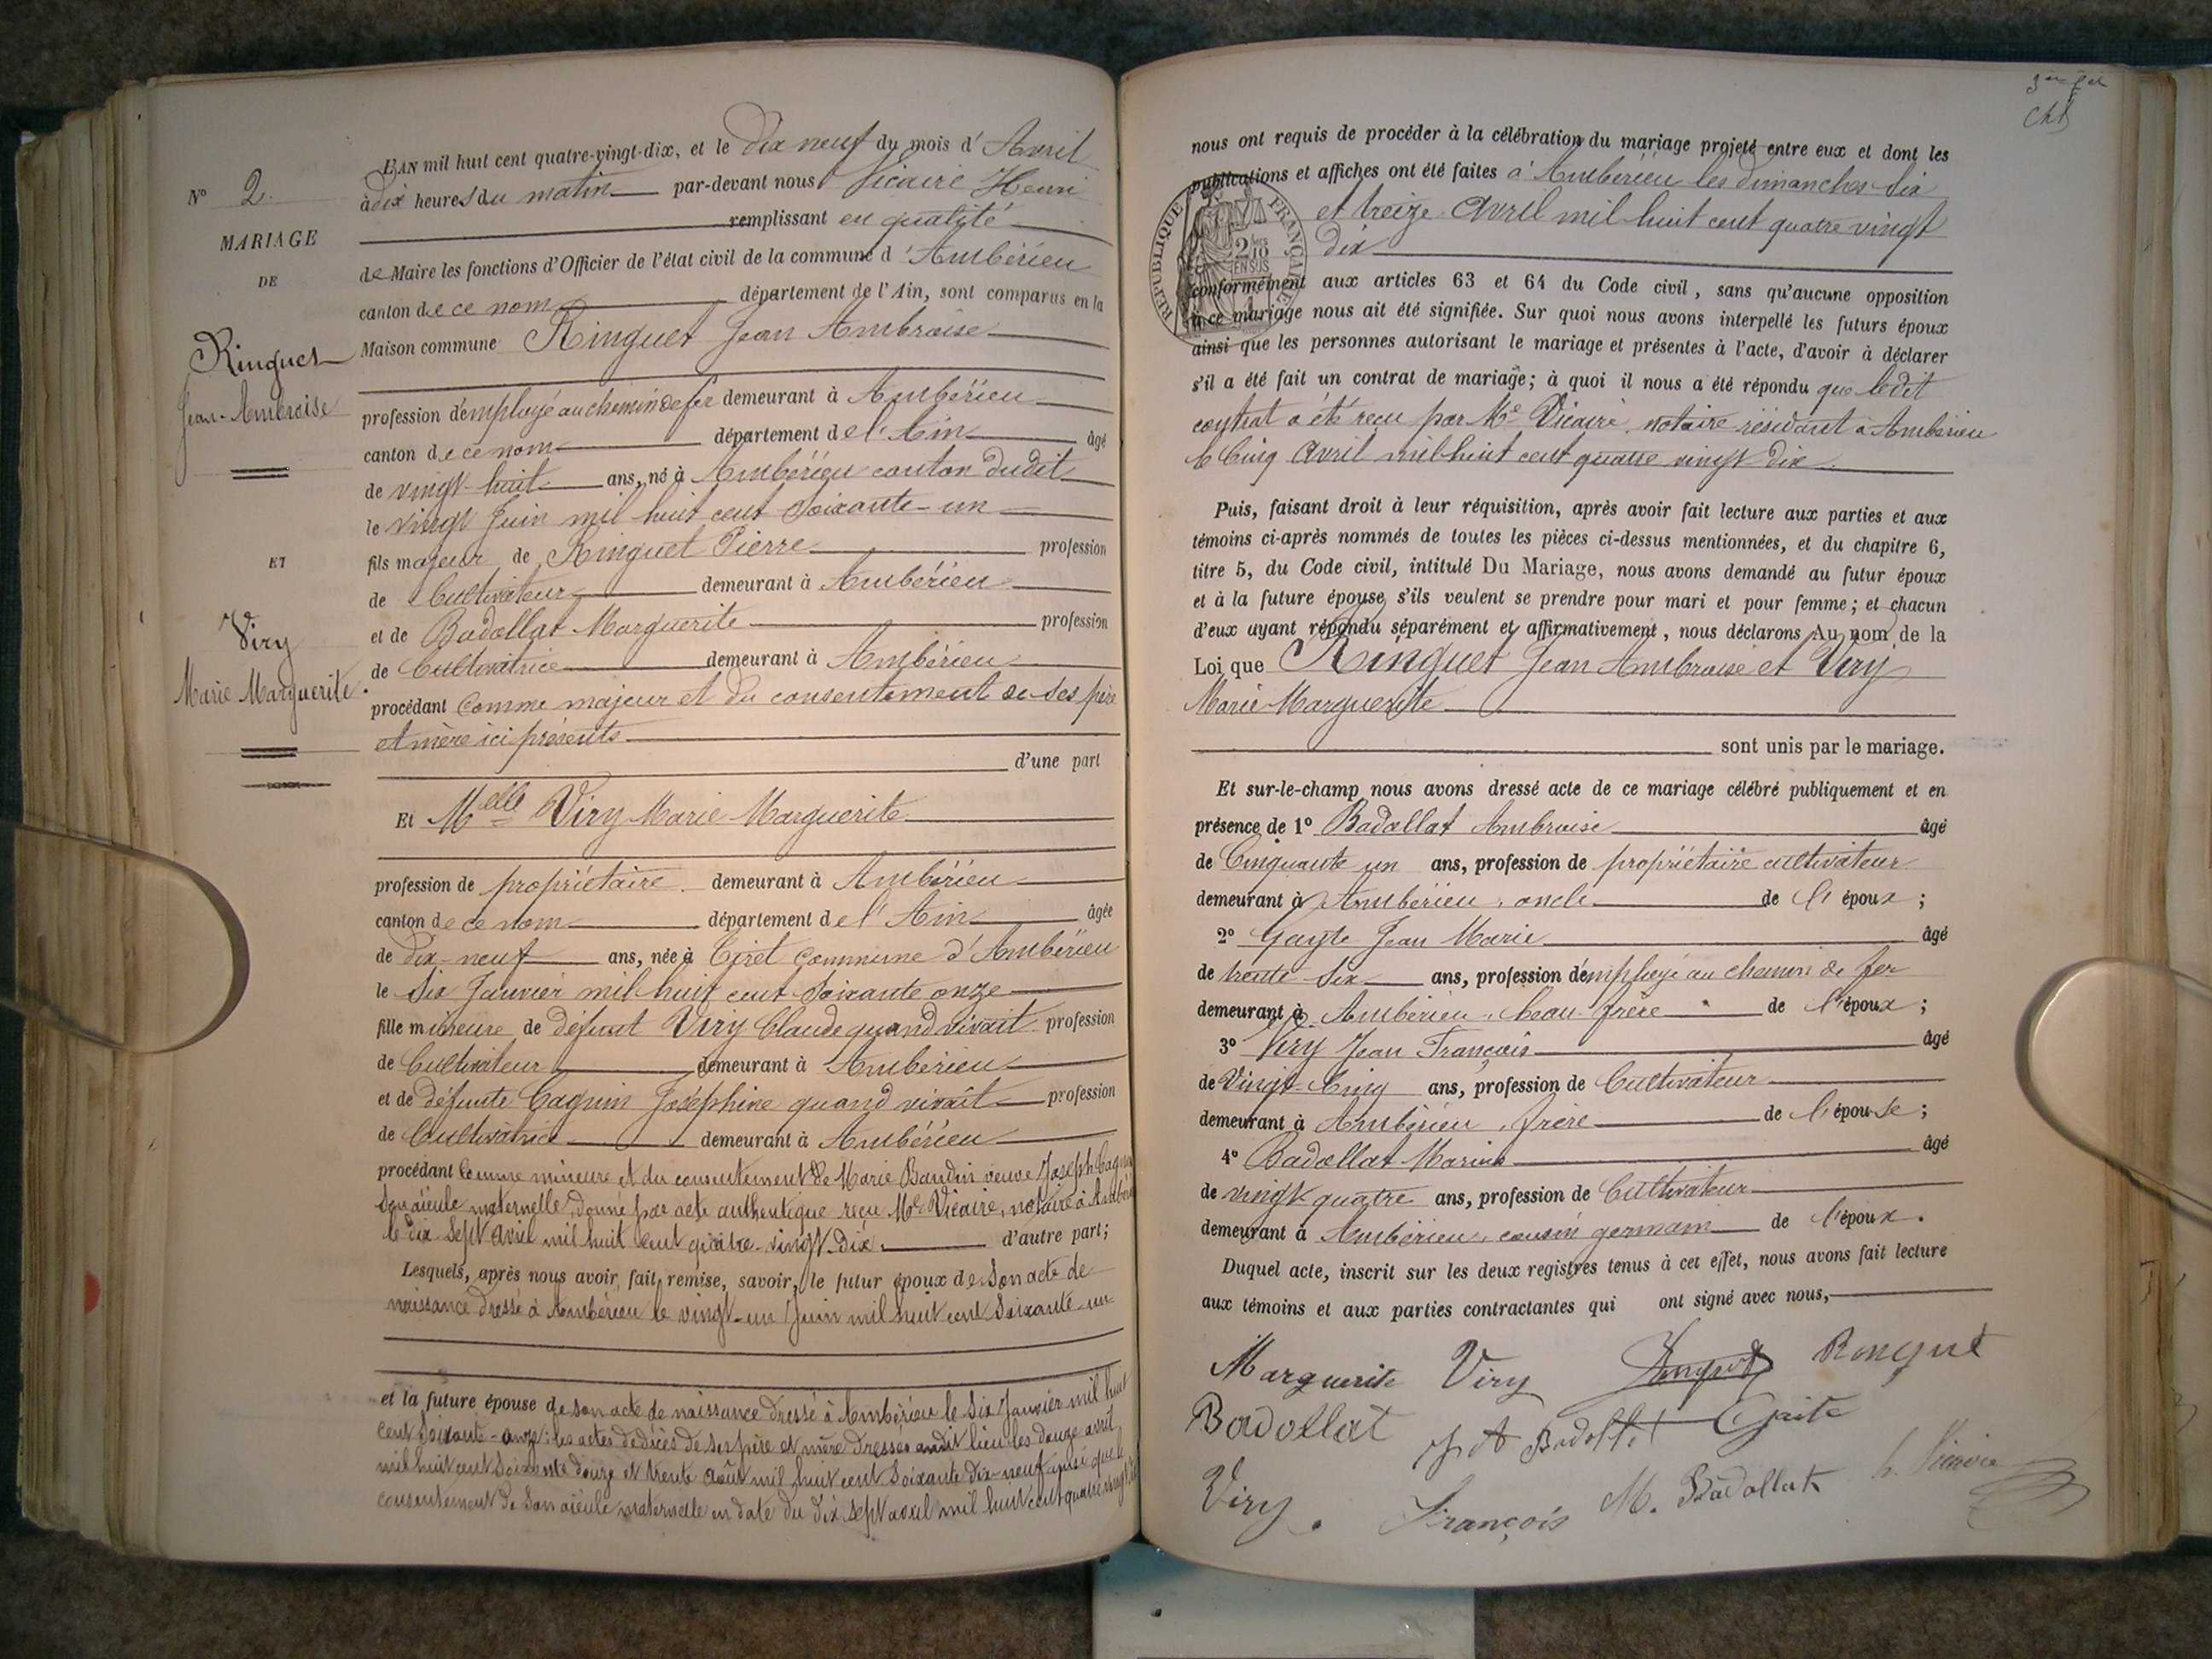 N° 2.
MARIAGE
DE
Ringuet
Jean-Ambroise
ET
Viry
Marie Marguerite.
L'AN mil huit cent quatre-vingt-dix, et le Dix neuf du mois d'Avril
à dix heures du matin par-devant nous Vicaire Henri
remplissant en qualité
de Maire les fonctions d'Officier de l'état civil de la commune d'Ambérieu
canton de ce nom département de l'Ain, sont comparus en la
Maison commune Ringuet Jean Ambroise
profession d'employé au chemin de fer demeurant à Ambérieu
canton de ce nom département de l'Ain âgé
de vingt-huit ans, né à Ambérieu canton dudit
le vingt Juin mil huit cent soixante-un
fils majeur de Ringuet Pierre profession
de Cultivateur demeurant à Ambérieu
et de Badollat Marguerite profession
de Cultivatrice demeurant à Ambérieu
procédant comme majeur et du consentement de ses père
et mère ici présents
d'une part
Et Melle Viry Marie Marguerite
profession de propriétaire demeurant à Ambérieu
canton de ce nom département de l'Ain âgée
de dix-neuf ans, née à Tiret commune d'Ambérieu
le six Janvier mil huit cent soixante onze
fille mineure de défunt Viry Claude quand vivait profession
de Cultivateur demeurant à Ambérieu
et de défunte Cagnin Joséphine quand vivait profession
de Cultivatrice demeurant à Ambérieu
procédant comme mineure et du consentement de Marie Baudin veuve Joseph Cagnin
son aïeule maternelle, donné par acte authentique reçu Me Vicaire, notaire à Ambérieu
le dix sept avril mil huit cent quatre-vingt-dix. d'autre part;
Lesquels, après nous avoir fait remise, savoir, le futur époux de son acte de
naissance dressé à Ambérieu le vingt-un Juin mil huit cent soixante-un
et la future épouse de son acte de naissance dressé à Ambérieu le six Janvier mil huit
cent soixante-onze; les actes de décès de ses père et mère dressés audit lieu les douze avril
mil huit cent soixante douze et trente août mil huit cent soixante dix-neuf ainsi que le
consentement de son aïeule maternelle en date du dix sept avril mil huit cent quatre vingt dix
nous ont requis de procéder à la célébration du mariage projeté entre eux et dont les
publications et affiches ont été faites à Ambérieu les dimanches six
et treize avril mil huit cent quatre vingt
dix
REPUBLIQUE FRANÇAISE
conformément aux articles 63 et 64 du Code civil, sans qu'aucune opposition
à ce mariage nous ait été signifiée. Sur quoi nous avons interpellé les futurs époux
ainsi que les personnes autorisant le mariage et présentes à l'acte, d'avoir à déclarer
s'il a été fait un contrat de mariage; à quoi il nous a été répondu que ledit
contrat a été reçu par Me Vicaire notaire résidant à Ambérieu
le Cinq avril mil huit cent quatre vingt-dix.
Puis, faisant droit à leur réquisition, après avoir fait lecture aux parties et aux
témoins ci-après nommés de toutes les pièces ci-dessus mentionnées, et du chapitre 6,
titre 5, du Code civil, intitulé Du Mariage, nous avons demandé au futur époux
et à la future épouse s'ils veulent se prendre pour mari et pour femme; et chacun
d'eux ayant répondu séparément et affirmativement, nous déclarons Au nom de la
Loi que Ringuet Jean Ambroise et Viry
Marie Marguerite
sont unis par le mariage.
Et sur-le-champ nous avons dressé acte de ce mariage célébré publiquement et en
présence de 1° Badollat Ambroise âgé
de Cinquante un ans, profession de propriétaire cultivateur
demeurant à Ambérieu, oncle de l'époux;
2° Gayte Jean Marie âgé
de trente-six ans, profession d'employé au chemin de fer
demeurant à Ambérieu, beau-frère de l'époux;
3° Viry Jean François âgé
de Vingt-Cinq ans, profession de Cultivateur
demeurant à Ambérieu, frère de l'épouse;
4° Badollat Marius âgé
de vingt quatre ans, profession de Cultivateur
demeurant à Ambérieu, cousin germain de l'époux.
Duquel acte, inscrit sur les deux registres tenus à cet effet, nous avons fait lecture
aux témoins et aux parties contractantes qui ont signé avec nous,
Marguerite Viry
Badollat Gaite
Viry François M. Badollat h. Vicaire